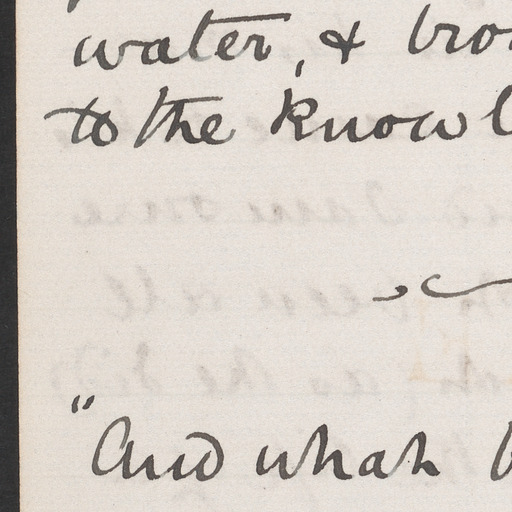 water, & bro
to the knowl
"And what b